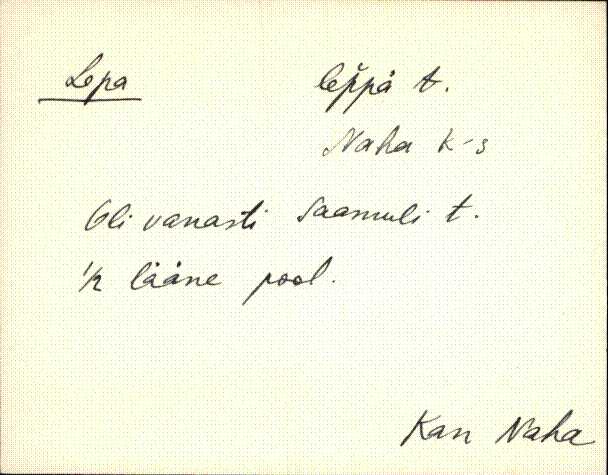 Lepa lep̆pä t.
Naha k-s
Oli vanasti Saamuli t.
lääne pool.
Kan Naha